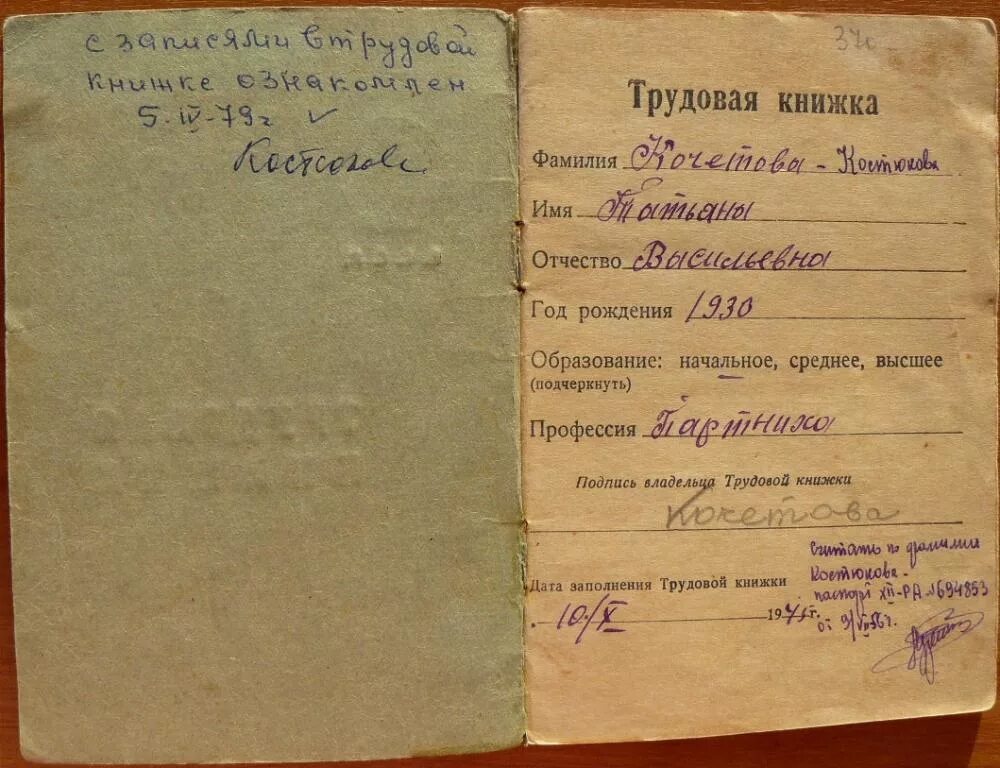 с записями в трудовой
книжке ознакомлен
5.IV-79г ✓
Костюкова
370
Трудовая книжка
Фамилия Кочетова - Костюкова
Имя Татьяна
Отчество Васильевна
Год рождения 1930
Образование: начальное, среднее, высшее
(подчеркнуть)
Профессия
Подпись владельца Трудовой книжки
Кочетова
Дата заполнения Трудовой книжки
10/X 194 г.
Считать по фамилии
Костюкова -
паспорт XII-РА №694853
от 9/VII 56г.